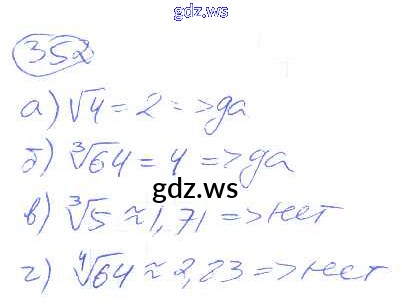 gdz.ws
352
а) √4 = 2 => да
б) ∛64 = 4 => да
gdz.ws
в) ∛5 ≈ 1,71 => нет
г) ∜64 ≈ 2,23 => нет
gdz.ws